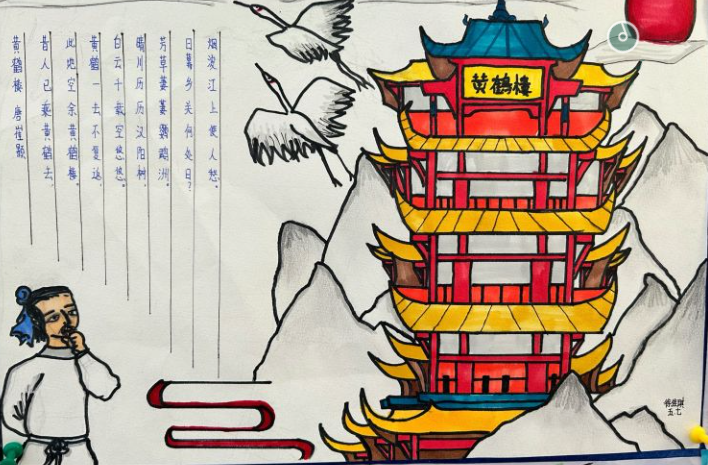 黄鹤楼 唐崔颢
昔人已乘黄鹤去,
此地空余黄鹤楼.
黄鹤一去不复返,
白云千载空悠悠.
晴川历历汉阳树,
芳草萋萋鹦鹉洲.
日暮乡关何处是?
烟波江上使人愁.
黄鹤楼
五.七